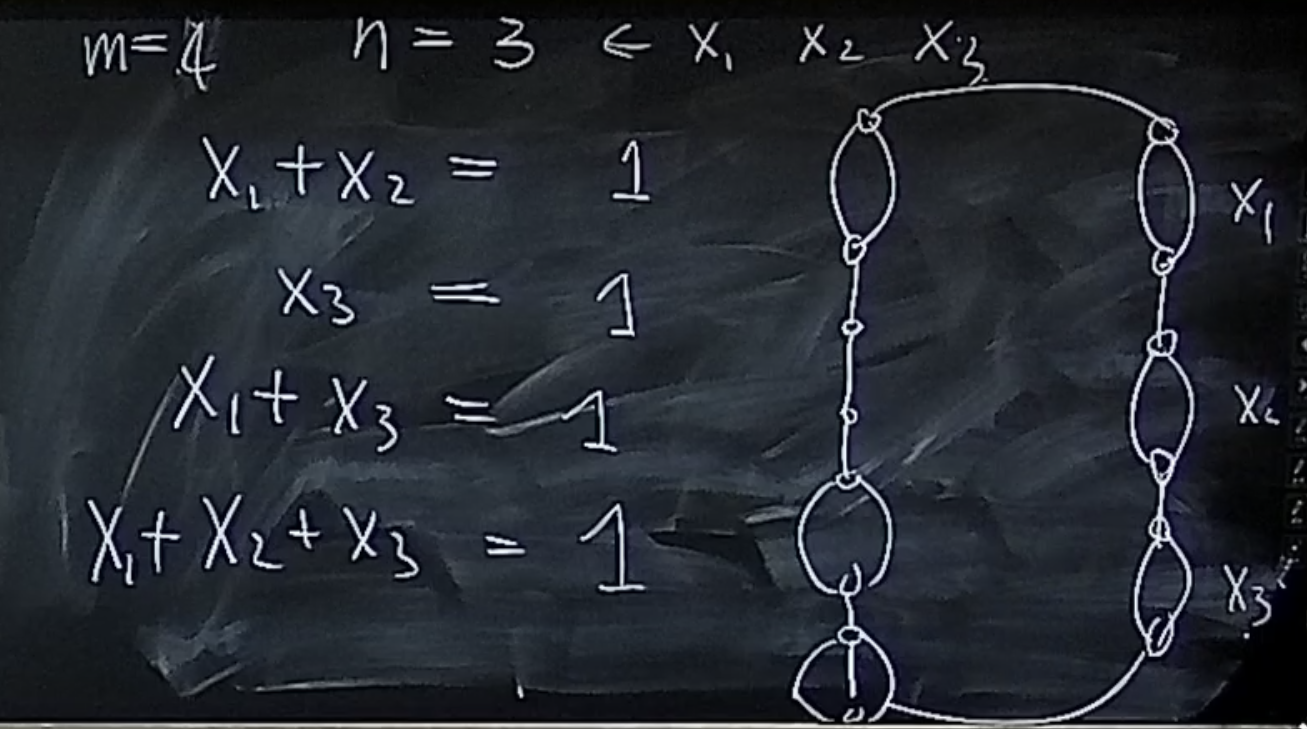 m=4 n = 3 ← x₁ x₂ x₃
x₁ + x₂ = 1
x₃ = 1
x₁ + x₃ = 1
x₁ + x₂ + x₃ = 1
x₁
x₂
x₃